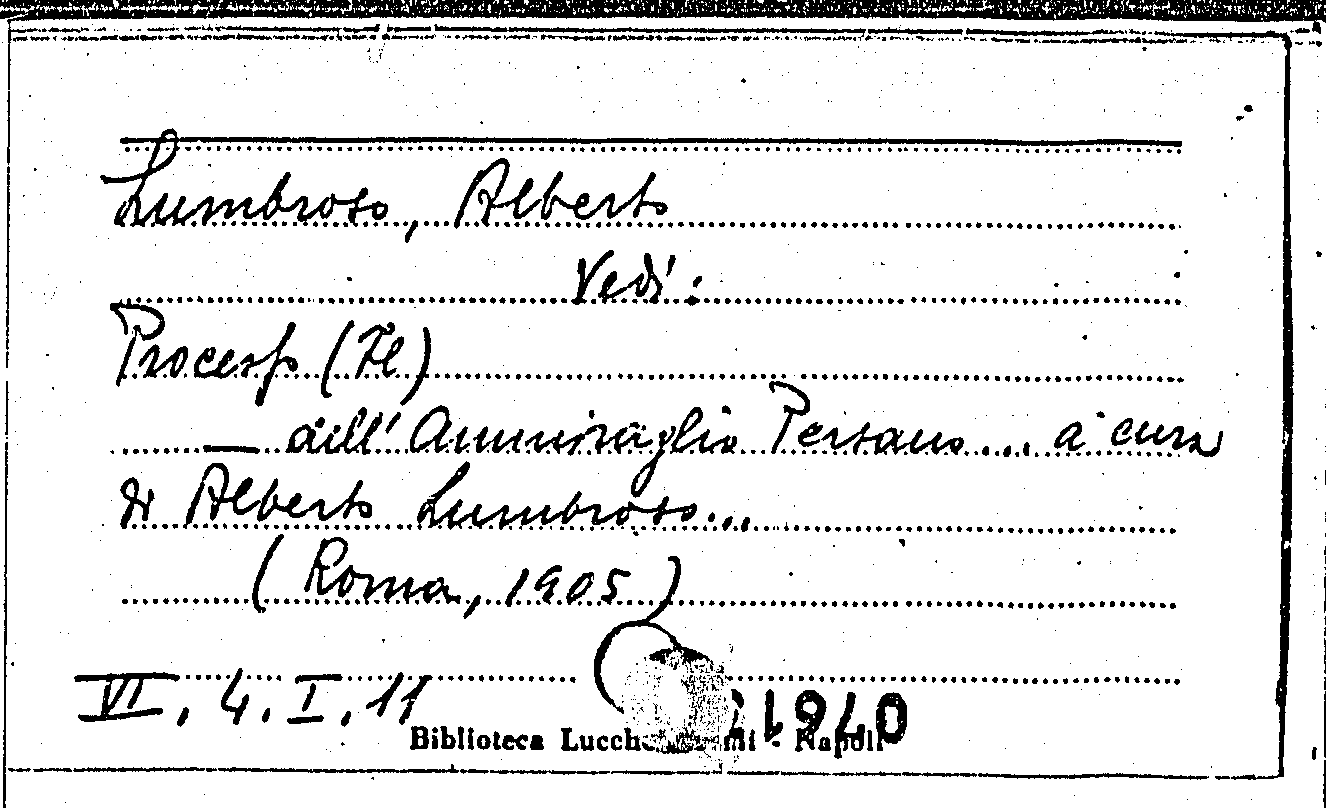 Lumbroso, Alberto
Vedi:
Processo (Il)
— dell'Ammiraglio Persano... a cura
di Alberto Lumbroso...
(Roma, 1905)
VI. 4. I. 11
Biblioteca - Napoli